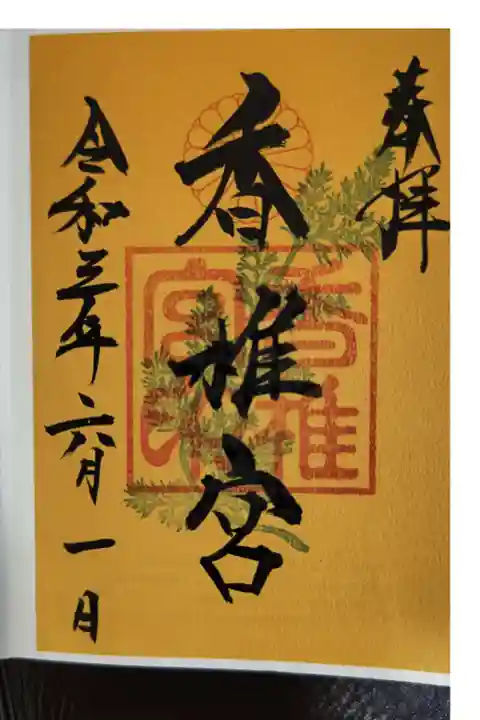 奉拝
香椎宮
令和三年六月一日
香椎
宮印